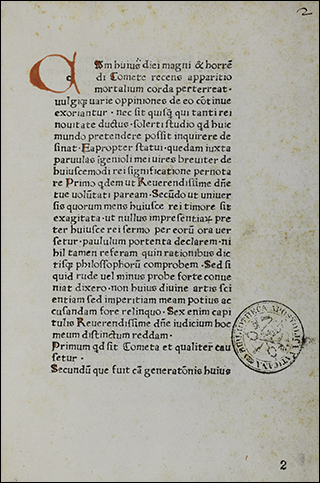 2
Cum huiꝰ diei magni & horrē
di Comete recens apparitio
mortalium corda perterreat·
uulgiqꝫ uarie oppiniones de eo cōtinue
exoriantur· nec sit quisqꝫ qui tanti rei
nouitate ductus· solerti studio qd huic
mundo pretendere possit inquirere de
sinat· Eapropter statui· quedam iuxta
paruulas īgenioli mei uires breuiter de
huiuscemodi rei significatione pernota
re Primo qdem ut Reuerendissime dn̄e
tue uolūtati paream· Secūdo ut uniuer
sis quorum mens huiusce rei timore sit
exagitata· ut nullus impresentiaꝝ pre
ter huiusce rei sermo per eorū ora uer
setur· paululum portenta declarem· ni
hil tamen referam quin rationibus dic
tisqꝫ philosophorū comprobem· Sed si
quid rude uel minus probe forte conue
niat dixero· non huius diuine artis sci
entiam sed imperitiam meam potius ac
cusandam fore relinquo· Sex enim capi
tulis Reuerendissime dn̄e iudicium hoc
meum distinctum reddam·
Primum qd sit Cometa et qualiter cau
setur·
Secundū que fuit cā generatōnis huius
BIBLIOTHECA APOSTOLICA VATICANA
2